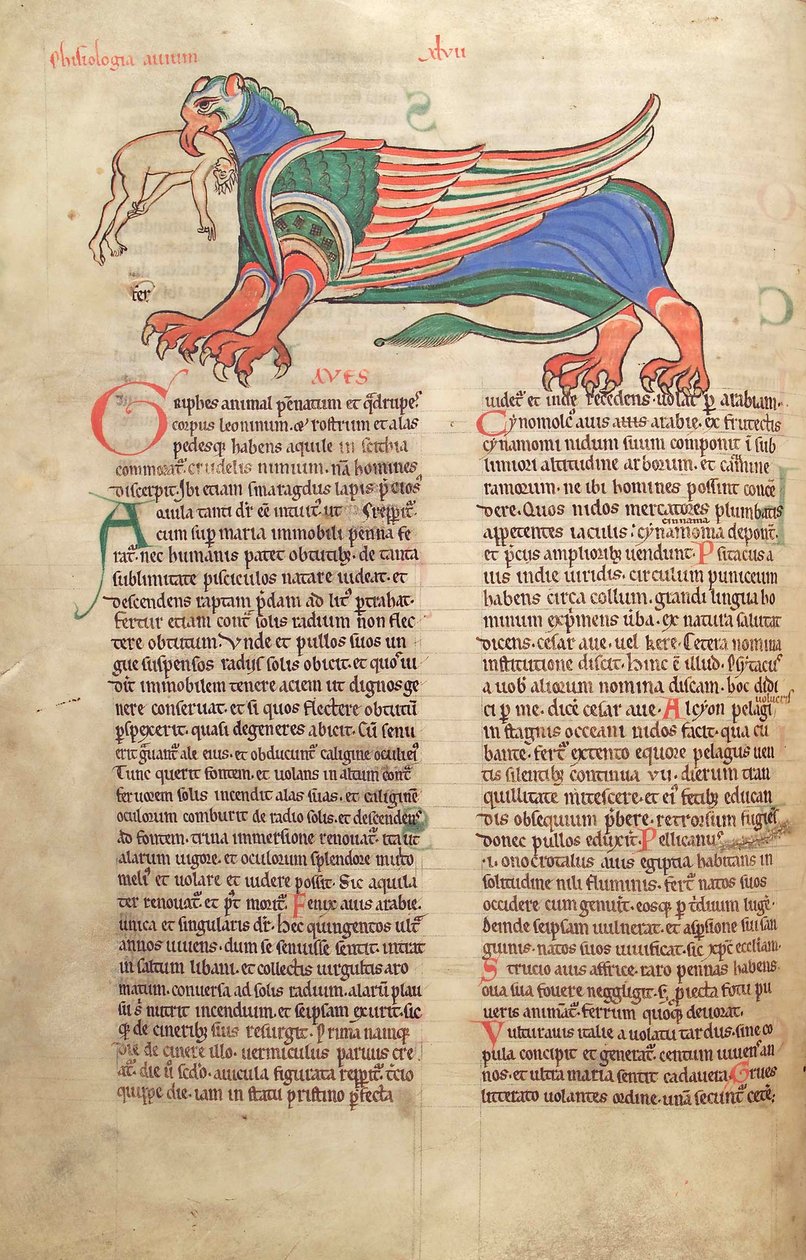 Phisiologia auium
xlvii
ter
AVES
Griphes animal pēnatum et q̄drupes.
corpus leoninum. & rostrum et alas
pedesq; habens aquile in scithia
commorat̃. crudelis nimium. nā homines
discerpit. Ibi etiam smaragdus lapis p̄ciosꝰ
Aquila tanti dr̄ eē intuitꝰ. ut
cum sup̱ maria immobili penna fe
rat̃. nec humanis patet obtutibꝫ. de tanta
sublimitate pisciculos natare uideat. et
descendens raptam p̄dam ad litꝰ p̱trahat.
Fertur etiam cont̃ solis radium non flec
tere obtutum. Vnde et pullos suos un
gue suspensos radijs solis obicit. et quos ui
dit immobilem tenere aciem ut dignos ge
nere conseruat. et si quos flectere obtutū
p̱spexerit. quasi degeneres abicit. Cū senu
erit g̃uant̃ ale eius. et obducunt̃ caligine oculi eiꝰ
Tunc querit fontem. et uolans in altum cont̃
feruorem solis incendit alas suas. et caliginē
oculorum comburit de radio solis. et descendens
ad fontem. trina immersione renouat̃. ita ut
alarum uigore. et oculorum splendore multo
meliꝰ et uolare et uidere possit. Sic aquila
ter renouat̃. et p̱t morit̃. Fenix auis arabie.
unica et singularis dr̄. Hec quingentos ult̃
annos uiuens. dum se senuisse sentit. intrat
in saltum libani. et collectis uirgultis aro
matum. conuersa ad solis radium. alarū plau
su s̄ nutrit incendium. et seipsam exurit. sic
q̄ de cineribꝫ suis resurgit. Prima namq;
die de cinere illo. uermiculus paruus cre
at̃. die ū scđo. auicula figurata repp̱it̃. t̄cio
quippe die. iam in statū pristino p̱fecta
uidet̃. et inde recedens. uolat p̱ arabiam.
Cynomolcꝰ auis arabie. ex frutectis
cynamomi nidum suum componit ī sub
limiori altitudine arborum. et cacumine
ramorum. ne ibi homines possint conce
dere. Quos nidos mercatores plumbatis
cinnama
appetentes iaculis. cynamoma deponūt.
et p̄cus amplioribꝫ uendunt. Psitacus a
uis indie uiridis. circulum puniceum
habens circa collum. grandi lingua ho
minum exp̄mens ūba. ex natura salutat
dicens. cesar aue. uel kere. Cetera nomina
institutione discit. hinc ē illud. Psytacꝰ
a uob̄ aliorum nomina discam. hoc didi
uolucris
ci p̱ me. dicē cesar aue. Alcyon pelagi
in stagnis occeani nidos facit. qua cu
bante. fert̃ extento equore pelagus uen
tis silentibꝫ continua vii. dierum tran
quillitate mitescere. et eiꝰ fetibꝫ educan
dis obsequium p̄bere. retrorsum fugiēs
donec pullos eduxit. Pellicanuꝰ
.i. onocrotalus auis egiptia habitans in
solitudine nili fluminis. fert̃ natos suos
occidere cum genuit. eosq; p̱ t̄duum luge.
deinde seipsam uulnerat. et asp̱sione sui san
guinis. natos suos uiuificat. sic xp̄c eccl̄iam.
Strucio auis affrice. raro pennas habens
oua sua fouere negglugit. s; p̄iecta fotu pu
ueris animāt̃. ferrum quoq; deuorat.
Vultur auis italie a uolatu tardus. sine co
pula concipit et generat. centum uiuens an
nos. et ultra maria sentit cadauera. Grues
litterato uolantes ordine. unā secunt̃ cetē: